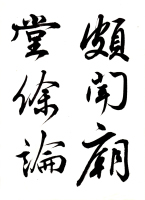 頗聞廟
堂餘論